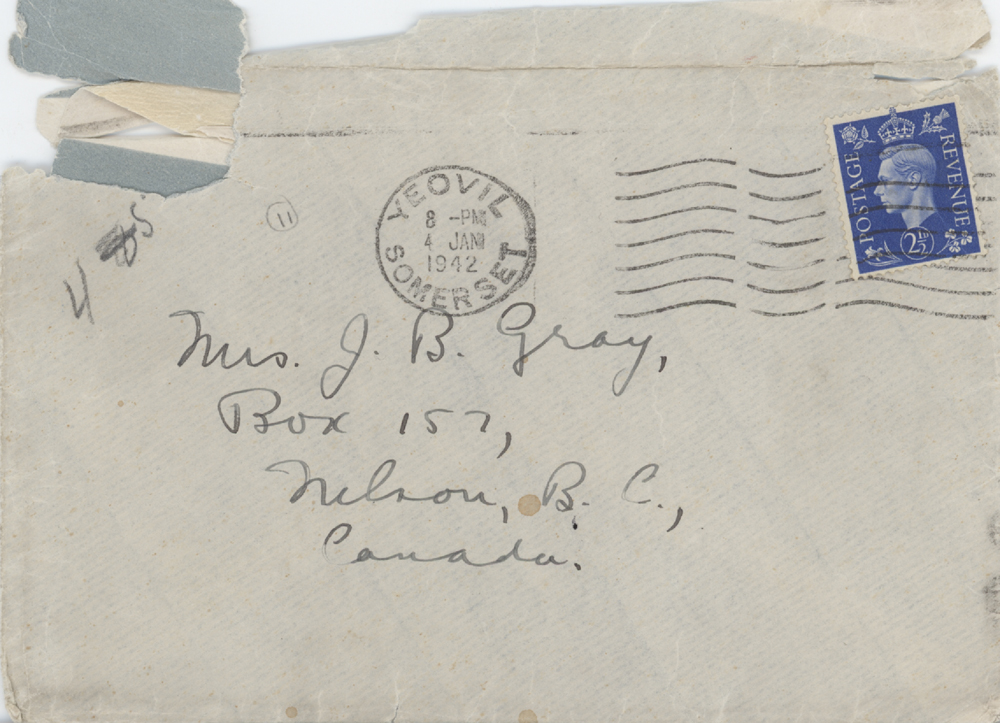 POSTAGE REVENUE
2½
YEOVIL
8 -PM
4 JAN
1942
SOMERSET
11
4
Mrs. J. B. Gray,
Box 157,
Nelson, B. C.,
Canada.